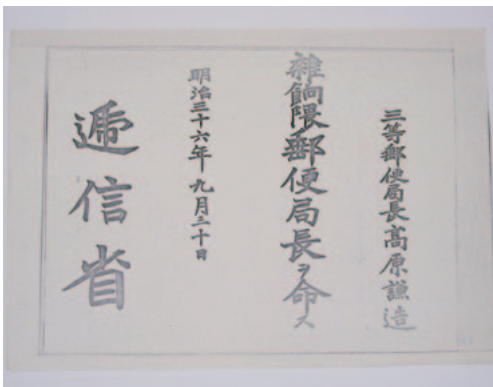 三等郵便局長高原謙造
雑餉隈郵便局長ヲ命ス
明治三十六年九月二十日
逓信省